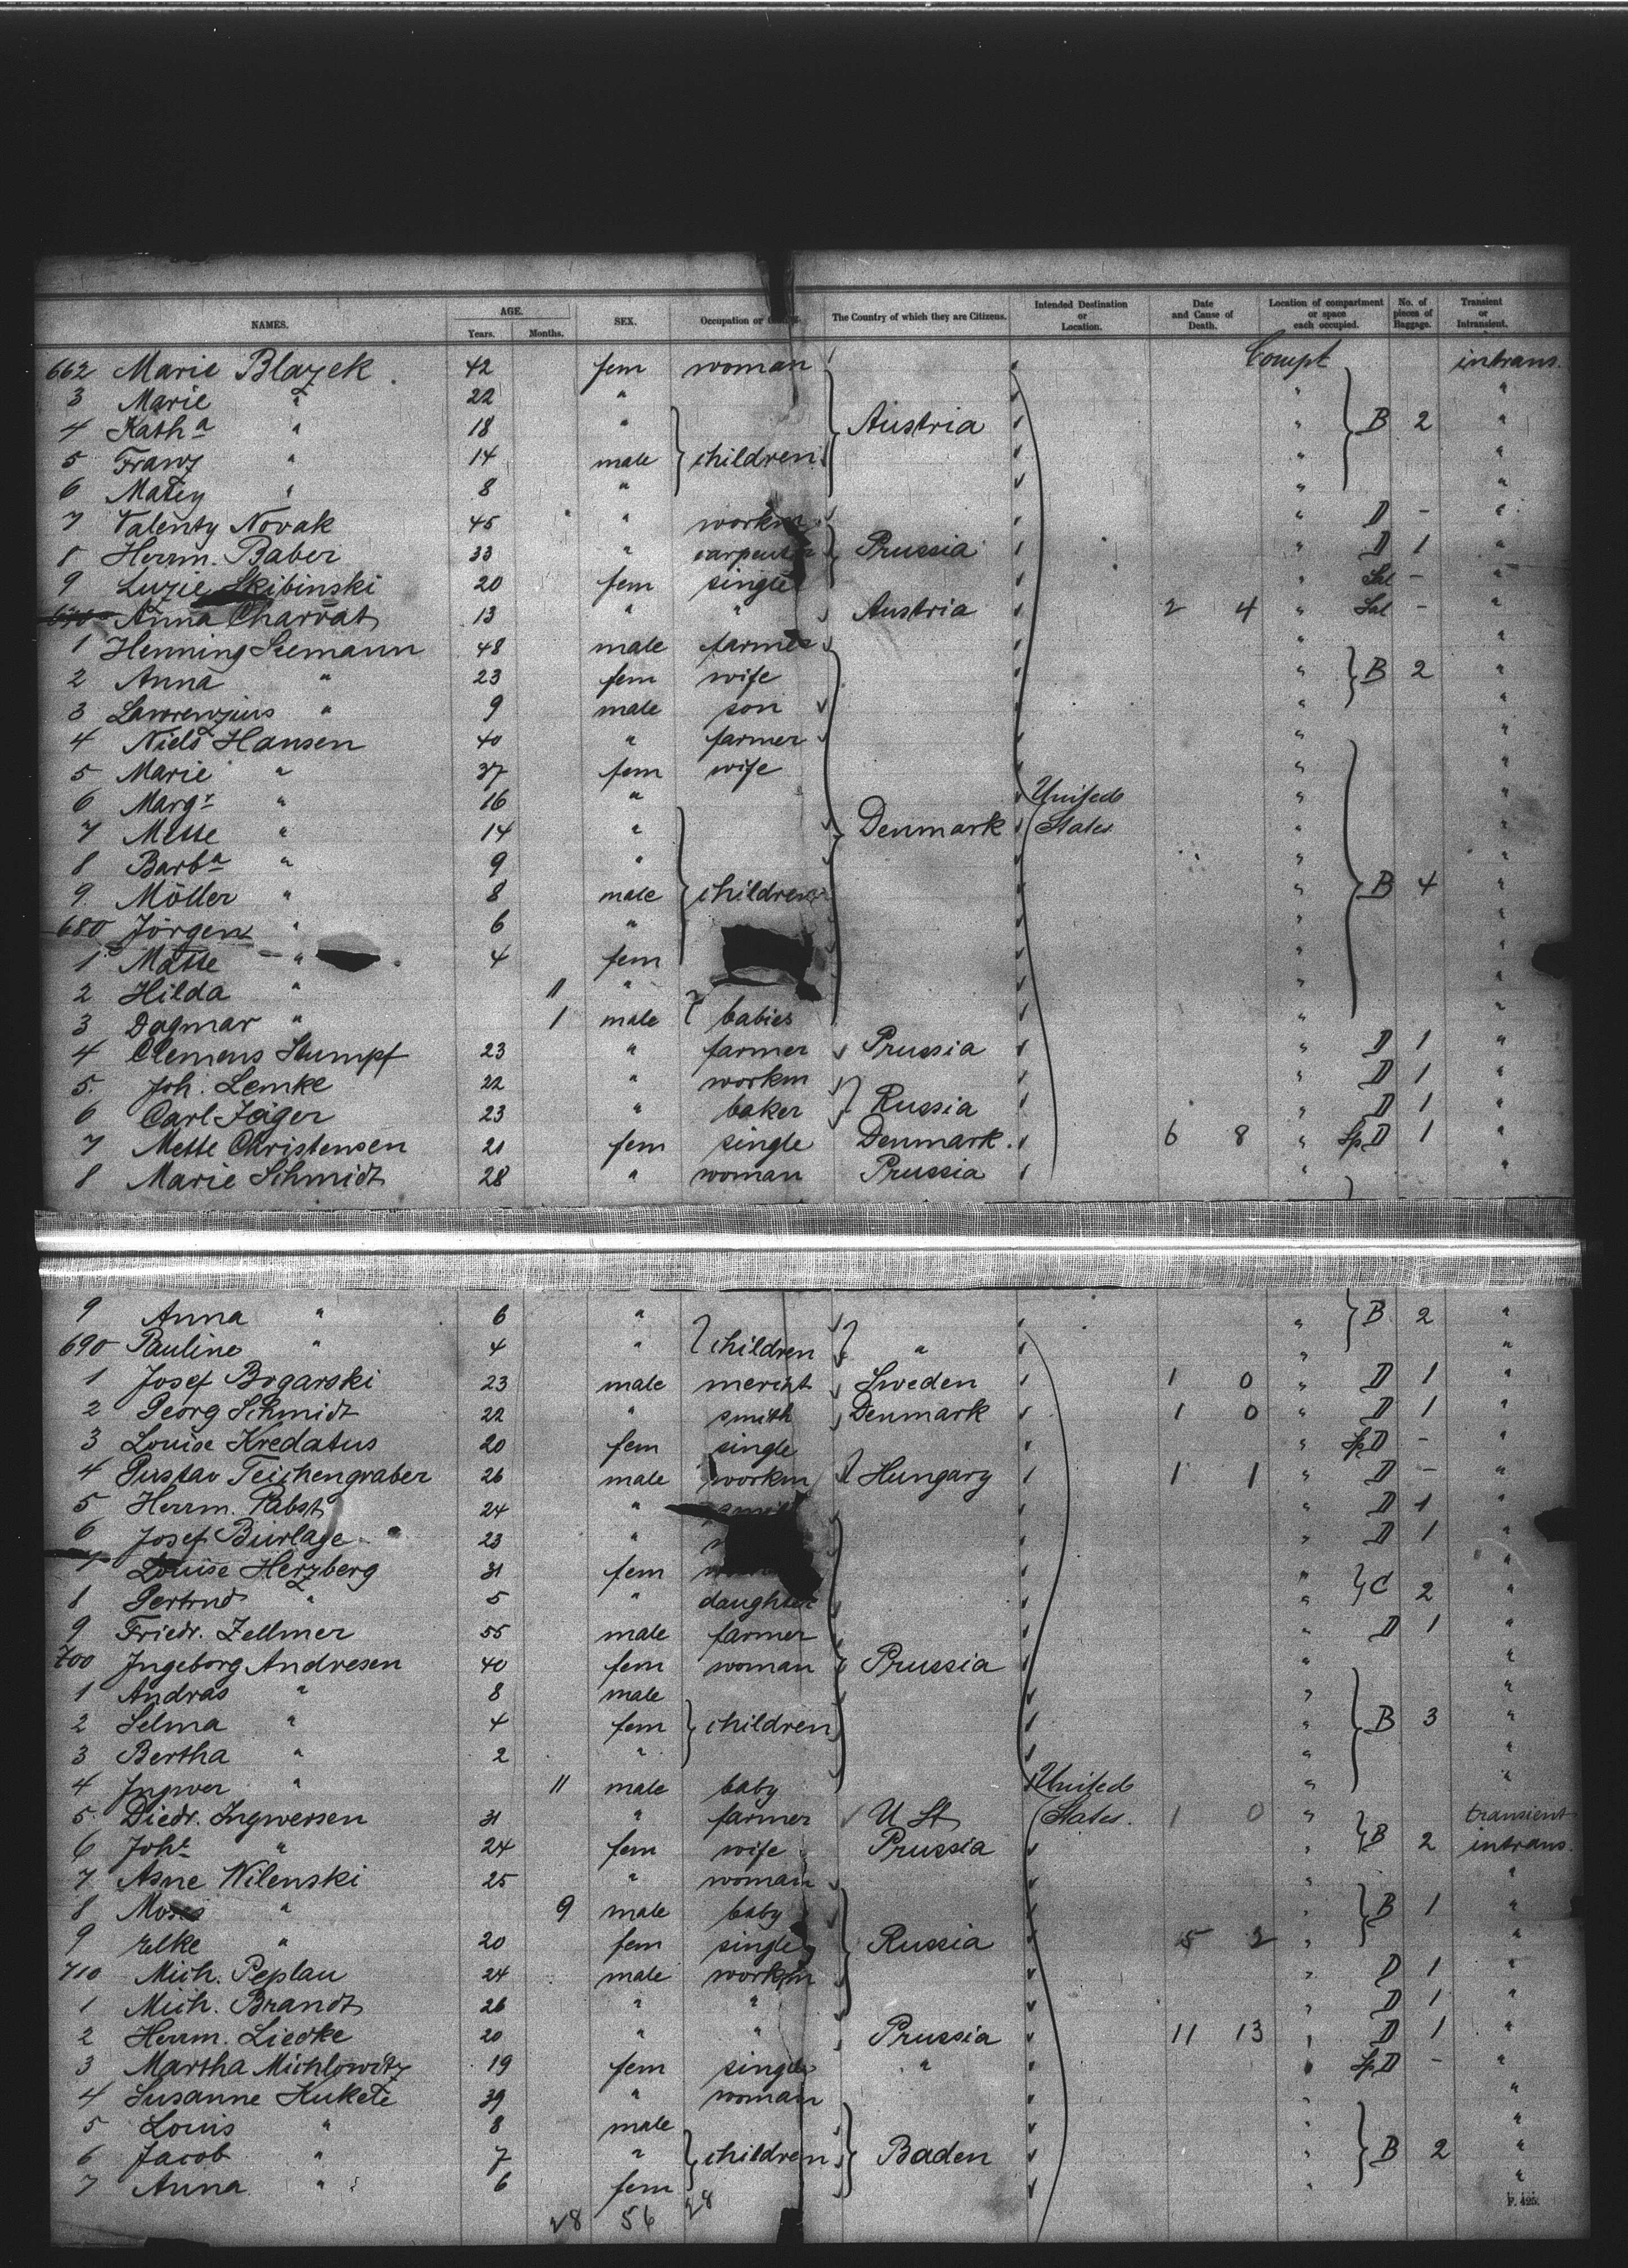 NAMES. AGE. Years. Months. SEX. Occupation or The Country of which they are Citizens. Intended Destination or Location. Date and Cause of Death. Location of compartment or space each occupied. No. of pieces of Baggage. Transient or Intransient.
662 Marie Blazek 42 fem woman Compt intrans.
3 Marie " 22 " " "
4 Katha " 18 " Austria " B 2 "
5 Franz " 14 male children " "
6 Matey " 8 " " "
7 Valenty Novak 45 " workm " D - "
8 Herrm. Baber 33 " carpenter Prussia " D 1 "
9 Luzie Skibinski 20 fem single " Sal - "
670 Anna Charvat 13 " " Austria 2 4 " Sal - "
1 Henning Seemann 48 male farmer " "
2 Anna " 23 fem wife " B 2 "
3 Lavrenzius " 9 male son " "
4 Niels Hansen 40 " farmer " "
5 Marie " 37 fem wife " "
6 Margr " 16 " United " "
7 Mette " 14 " Denmark States " "
8 Barba " 9 " " "
9 Möller " 8 male children " B 4 "
680 Jörgen " 6 " " "
1 Matte " 4 fem " "
2 Hilda " 11 " " "
3 Dagmar " 1 male babies " "
4 Clemens Stumpf 23 " farmer Prussia " D 1 "
5 Joh. Lemke 22 " workm " D 1 "
6 Carl Jäger 23 " baker Russia " D 1 "
7 Mette Christensen 21 fem single Denmark 6 8 " Sp D 1 "
8 Marie Schmidt 28 " woman Prussia " "
9 Anna " 6 " " B 2 "
690 Pauline " 4 " children " " "
1 Josef Bogarski 23 male mercht Sweden 1 0 " D 1 "
2 Georg Schmidt 22 " smith Denmark 1 0 " D 1 "
3 Louise Kredatus 20 fem single " Sp D - "
4 Gustav Teichengraber 26 male workm Hungary 1 1 " D - "
5 Herrm. Pabst 24 " " D 1 "
6 Josef Burlage 23 " " D 1 "
7 Louise Herzberg 31 fem " "
8 Gertrud " 5 " daughter " C 2 "
9 Friedr. Zellmer 55 male farmer " D 1 "
700 Ingeborg Andresen 40 fem woman Prussia " "
1 Andras " 8 male " "
2 Selma " 4 fem children " B 3 "
3 Bertha " 2 " " "
4 Ingwer " 11 male baby United " "
5 Diedr. Ingwersen 31 " farmer U St States. 1 0 " transient
6 Joht " 24 fem wife Prussia " B 2 intrans.
7 Asne Wilenski 25 " woman " "
8 Moses " 9 male baby " B 1 "
9 Elke " 20 fem single Russia 5 2 " "
710 Mich. Peplau 24 male workm " D 1 "
1 Mich. Brandt 26 " " " D 1 "
2 Herrm. Liedke 20 " " Prussia 11 13 " D 1 "
3 Martha Michlowitz 19 fem single " " Sp D - "
4 Susanne Kukete 39 " woman "
5 Louis " 8 male " "
6 Jacob " 7 " children Baden " B 2 "
7 Anna " 6 fem " "
28 56 28